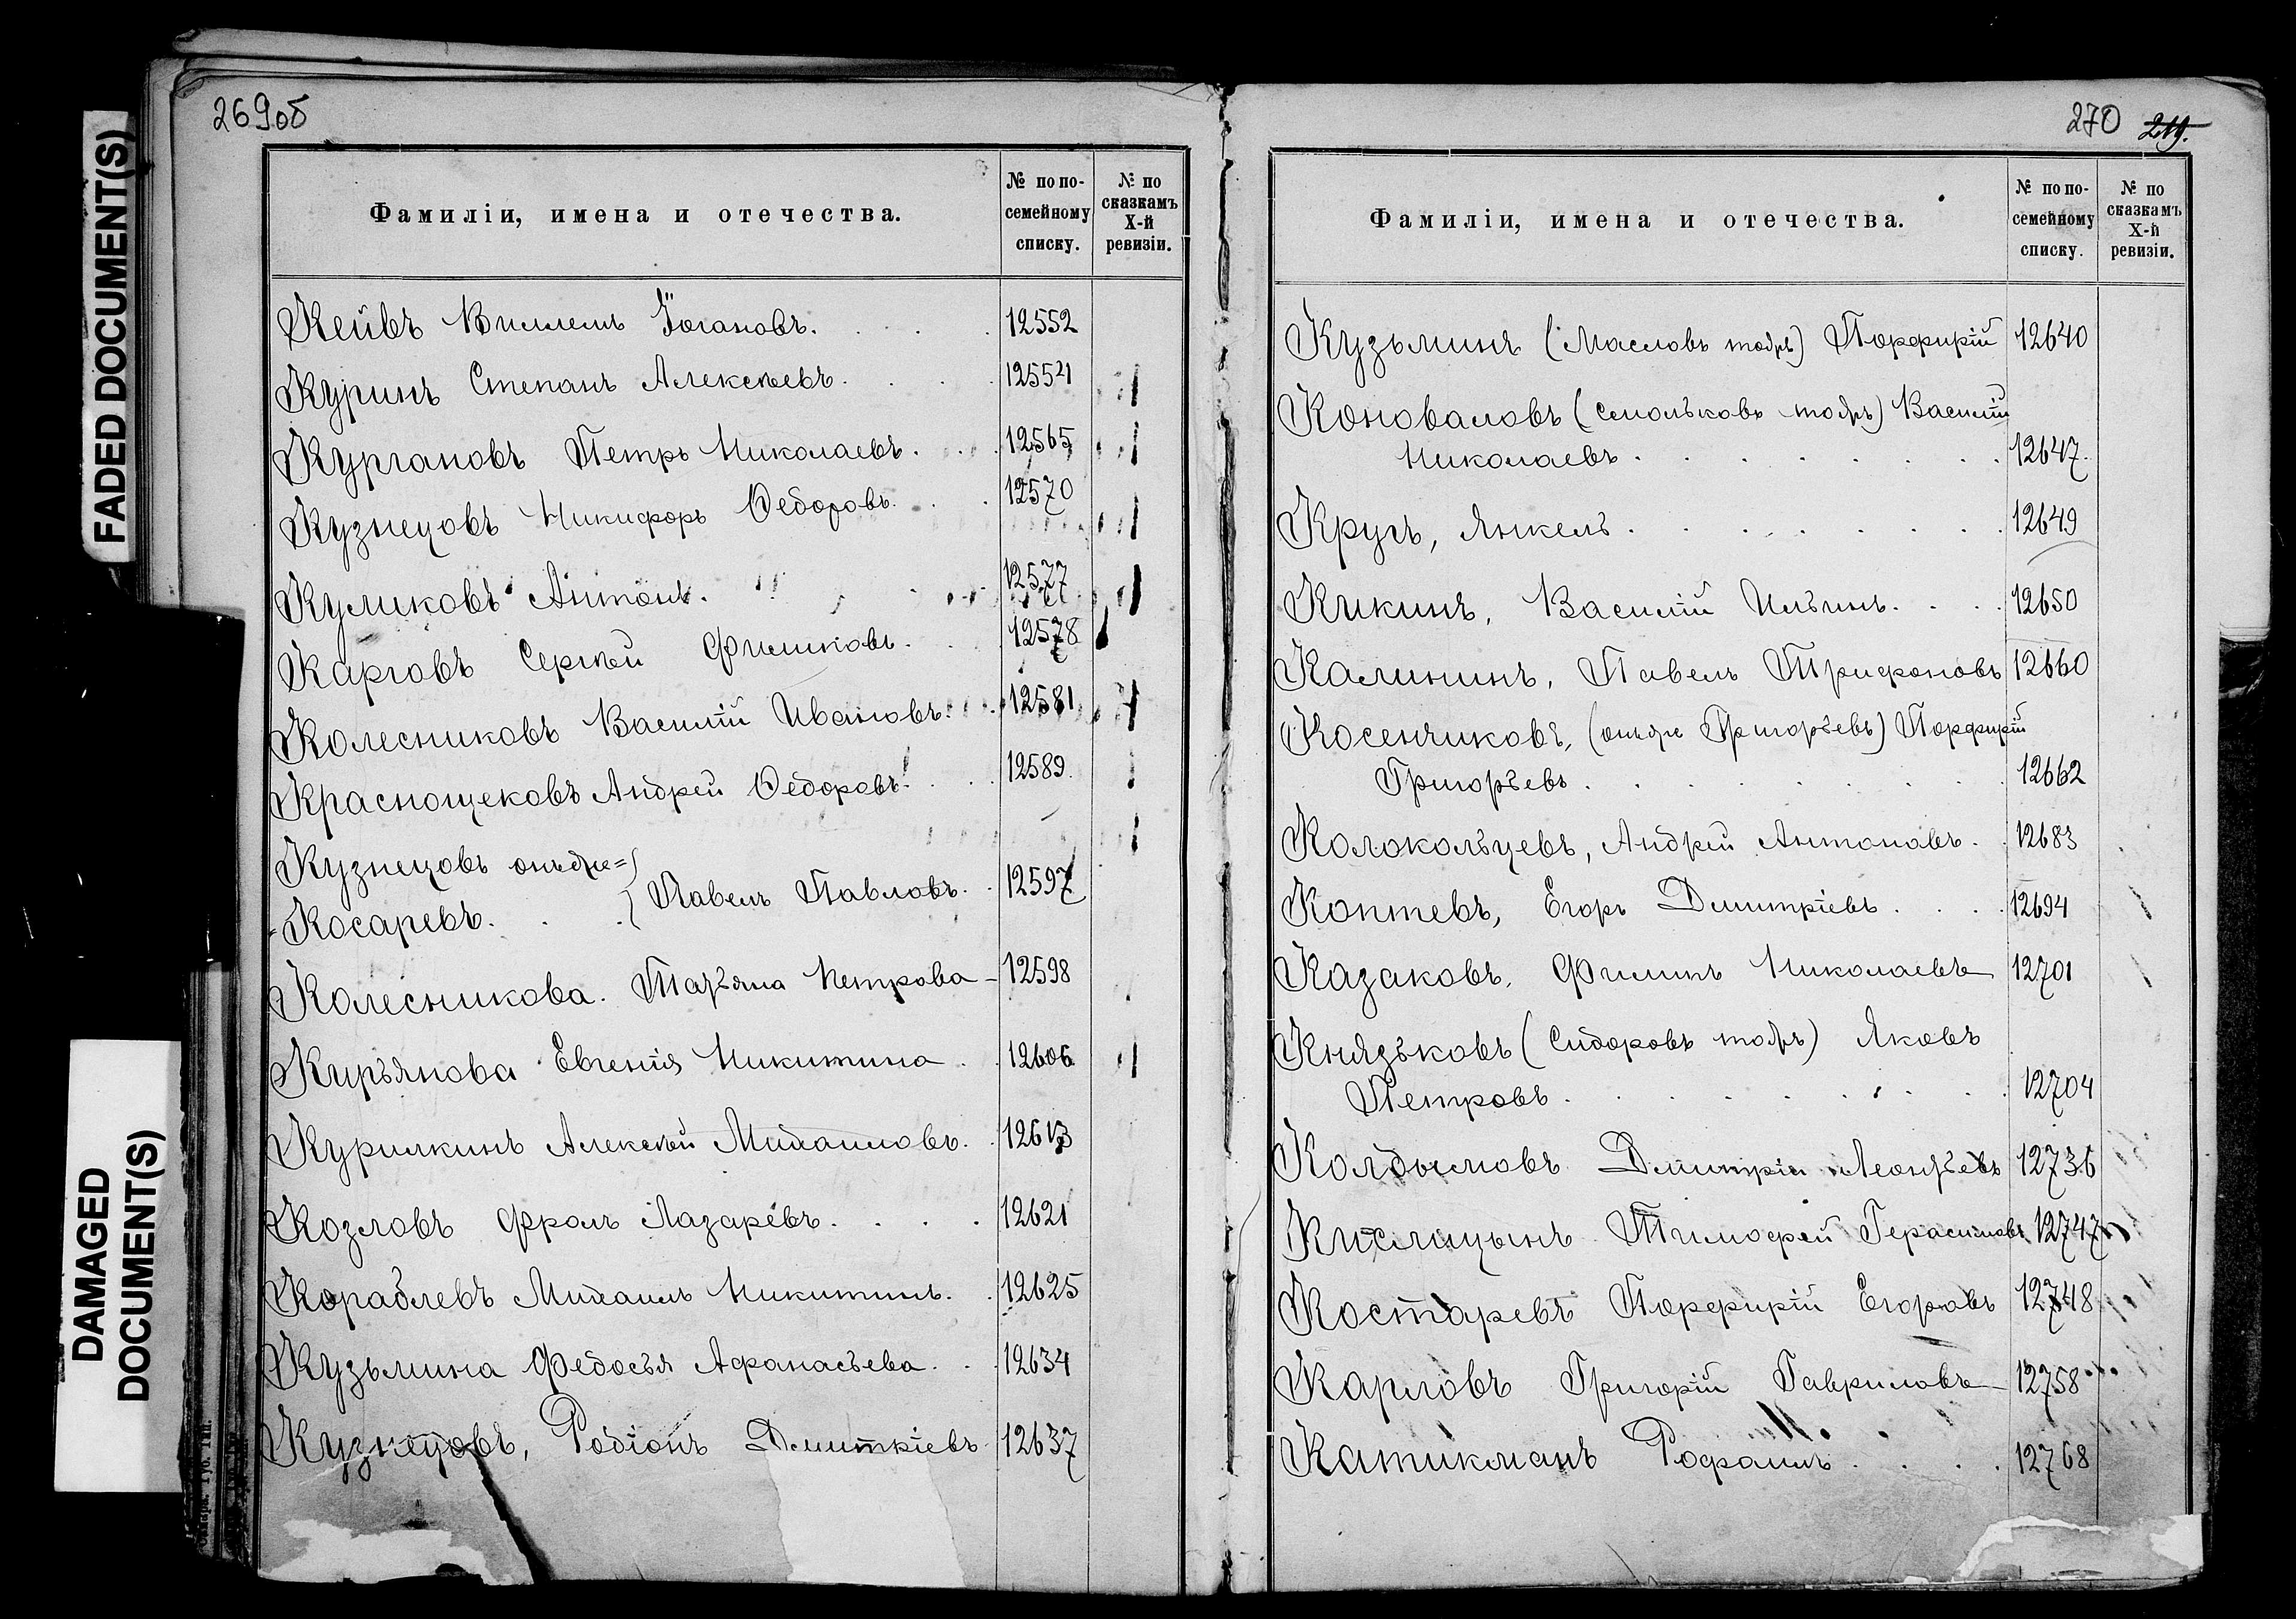 269об
Фамиліи, имена и отечества.
№ по по-
семейному
списку.
№ по
сказкамъ
X-й
ревизіи.
Кейвъ Виллемъ Югановъ. 12552
Куринъ Степанъ Алексѣевъ. 12554
Кургановъ Петръ Николаевъ. 12565
Кузнецовъ Никифоръ Ѳедоровъ. 12570
Куликовъ Антонъ. 12577
Карговъ Сергѣй Филиповъ. 12578
Колесниковъ Василій Ивановъ. 12581
Краснощековъ Андрей Ѳедоровъ. 12589.
Кузнецовъ онъ-же=
Косаревъ. Павелъ Павловъ. 12597
Колесникова. Татьяна Петрова 12598
Кирьянова Евгенія Никитина 12606
Курилкинъ Алексѣй Михаиловъ. 12613
Козловъ Фролъ Лазаревъ. 12621
Кораблевъ Михаилъ Никитинъ. 12625
Кузьмина Федосья Афанасьева. 12634
Кузнецовъ, Родіонъ Дмитріевъ 12637
FADED DOCUMENT(S)
DAMAGED
DOCUMENT(S)
270 219.
Фамиліи, имена и отечества.
№ по по-
семейному
списку.
№ по
сказкамъ
X-й
ревизіи.
Кузьминъ (Масловъ тожъ) Порфирій 12640
Коноваловъ (Смольковъ тожъ) Василій
Николаевъ. 12647.
Кругъ, Янкель. 12649
Кикинъ, Василій Ильинъ. 12650
Калининъ, Павелъ Трифоновъ 12660
Косенчиковъ, (онъ-же Григорьевъ) Порфирій
Григорьевъ. 12662
Колокольцевъ, Андрей Антоновъ. 12683
Коптевъ, Егоръ Дмитріевъ. 12694
Казаковъ, Филипъ Николаевъ 12701
Князьковъ (Сидоровъ тожъ) Яковъ
Петровъ. 12704
Колдымовъ Дмитрій Леонтьевъ 12736
Кислицынъ Тимофей Герасимовъ 12747
Костаревъ Порфирій Егоровъ 12748
Карповъ Григорій Гавриловъ 12758
Катикманъ Рофаилъ. 12768